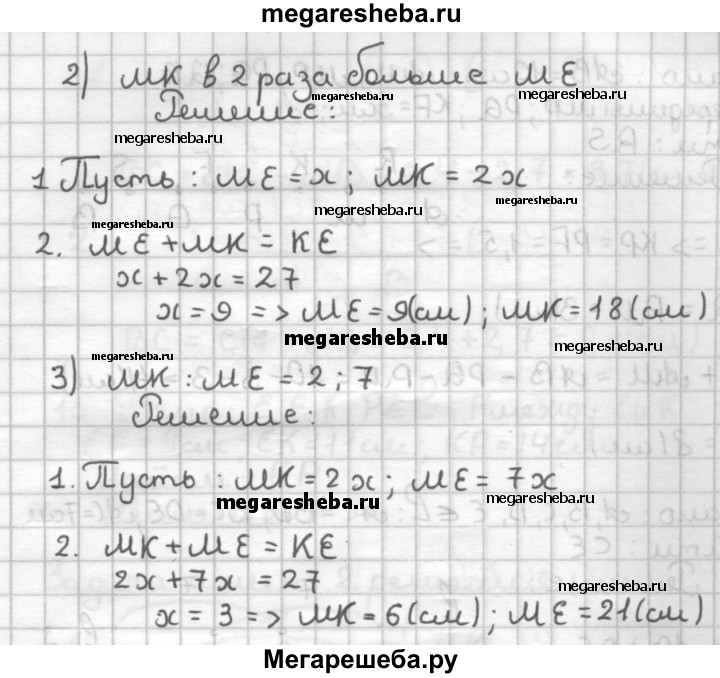 megaresheba.ru
2) МК в 2 раза больше МЕ
megaresheba.ru
megaresheba.ru
Решение:
megaresheba.ru
1 Пусть : МЕ = х ; МК = 2х
megaresheba.ru
megaresheba.ru
megaresheba.ru
2. МЕ + МК = КЕ
х + 2х = 27
х = 9 => МЕ = 9(см) ; МК = 18(см)
megaresheba.ru
megaresheba.ru
megaresheba.ru
3) МК : МЕ = 2 ; 7
Решение:
1. Пусть : МК = 2х ; МЕ = 7х
megaresheba.ru
megaresheba.ru
2. МК + МЕ = КЕ
2х + 7х = 27
megaresheba.ru
х = 3 => МК = 6(см) ; МЕ = 21(см)
Мегарешеба.ру